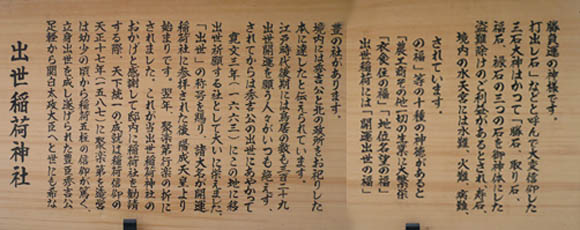 出世稲荷神社
足軽から関白太政大臣へと世にも希な
立身出世を成し遂げられた豊臣秀吉公
は幼少の頃から稲荷五社の信仰が篤く、
天正十七年(一五八七)に聚楽第を造営
する際、天下統一の成就は稲荷信仰の
おかげと感謝して邸内に稲荷社を勧請
されました。これが当出世稲荷神社の
始まりです。翌年、聚楽第行幸の折に
稲荷社に参拝された後陽成天皇より
「出世」の称号を賜り、諸大名が開運
出世祈願する社として大いに栄えました。
寛文三年(一六六三)にこの地に移
されてからは秀吉公の出世にあやかって
出世開運を願う人々がいつも絶えず、
江戸時代後期には鳥居の数も三百二十九
本に達したと伝えられています。
境内には秀吉公と北の政所をお祀りした
豊の社があります。
出世稲荷には「開運出世の福」
「衣食住の福」「地位名望の福」
「農工商その他一切の生業に大繁栄
の福」等の十種の神徳があると
されています。
境内の水天宮には水難、火難、病難、
盗難除けのご利益があるとされ、寿石、
福石、縁石の三つの石を御神体にした
三石大神はかつて「勝石、取り石、
打出し石」などと呼んで大変信仰した
勝負運の神様です。